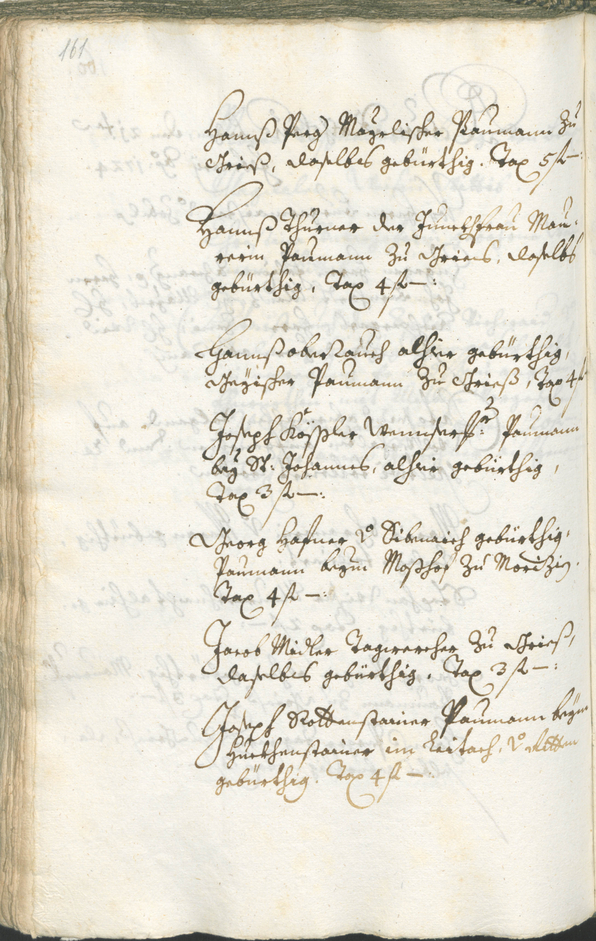 161
Hannß Perg Mayrlischer Paumann zu
Grieß, daselbs gebürthig. Tax 5 f —:
Hannß Thurner der Junckhfrau Mau=
rerin Paumann zu Griens, daselbs
gebürthig, Tax 4 f —:
Hannß oberrauch alhier gebürthig,
Paumann zu Grieß, Tax 4 f
Joseph Kößler Paumann
bey St: Johannes, alhier gebürthig,
Tax 3 f —:
Georg Hafner v Sibenaich gebürthig,
Paumann beym Moßhof zu Morizing.
Tax 4 f —:
Jacob Midler Tagwercher zu Grieß,
daselbs gebürthig, Tax 3 f —:
Joseph Rottenstainer Paumann beym
im Leitach, v Ritten
gebürthig. Tax 4 f —: